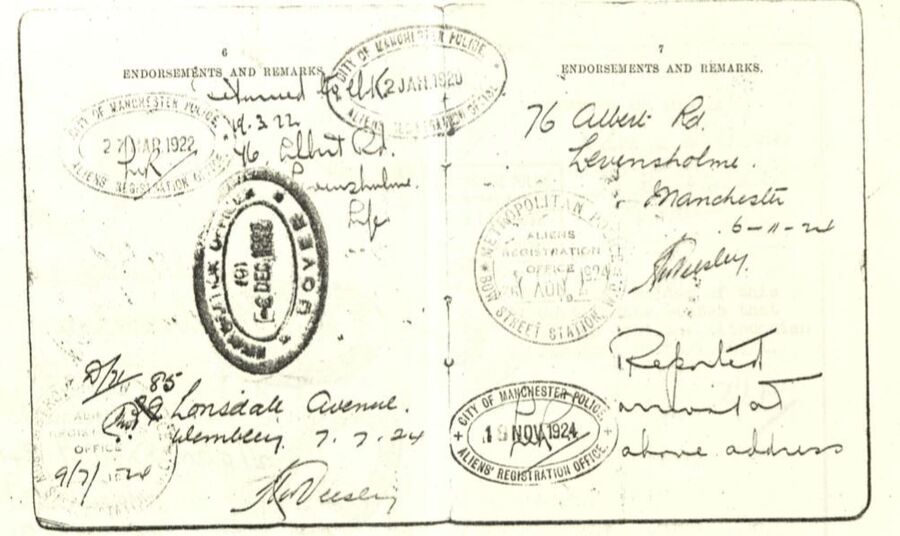 6
ENDORSEMENTS AND REMARKS
CITY OF MANCHESTER POLICE
2 JAN 1920
returned to U.K.
CITY OF MANCHESTER POLICE
MAR 1922
ALIENS' REGISTRATION OFFICE
19.3.22
76, Albert Rd.
Levensholme.
IMMIGRATION OFFICER
DEC
DOVER
85
Lonsdale Avenue.
Wembley 7.7.24
9/7/24
7
ENDORSEMENTS AND REMARKS.
76 Albert Rd.
Levensholme.
Manchester
6-11-24
METROPOLITAN POLICE
ALIENS
REGISTRATION
OFFICE
BOW STREET STATION
Reported
arrival at
above address
CITY OF MANCHESTER POLICE
NOV 1924
ALIENS' REGISTRATION OFFICE.